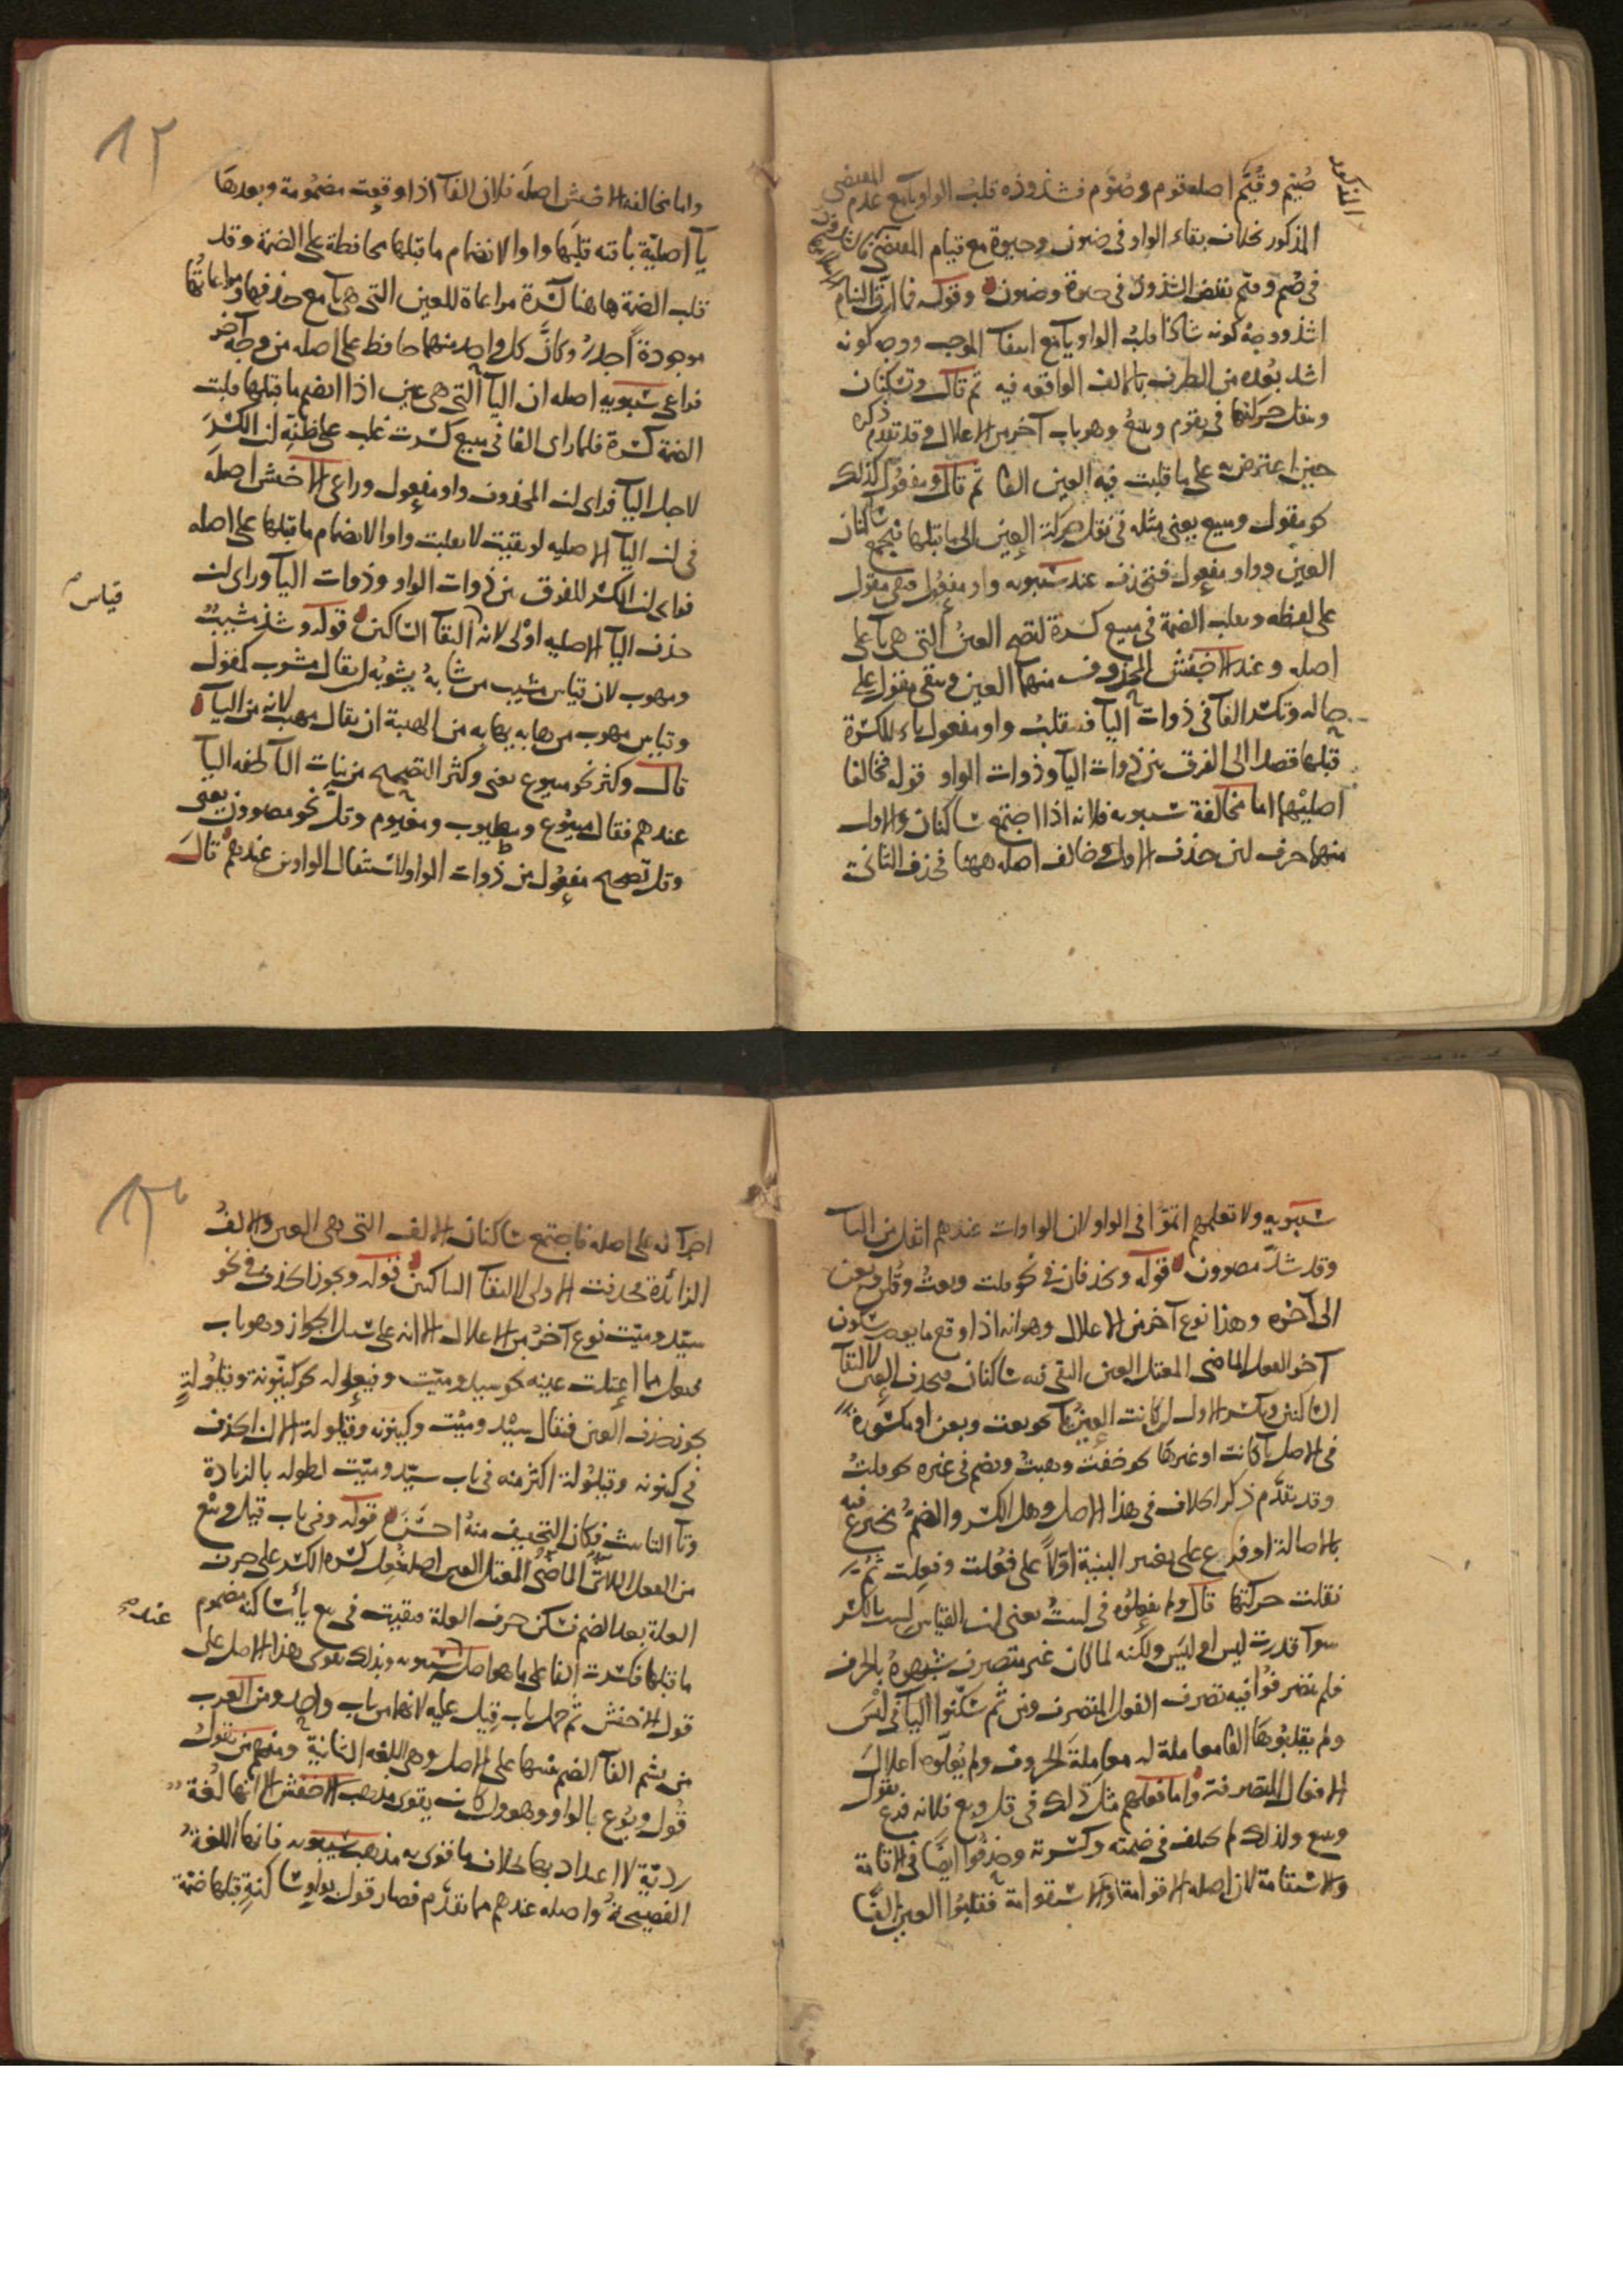 صُيّم وقُيّم اصله قوم وصُوّم فشذوذه قلبُ الواو يآ مع عدم المقتضي
المذكور بخلاف بقاء الواو في ضيون وحيوة مع قيام المقتضي
في صُيّم وقيّم نقيض الشذوذ في حيوة وضيون وقوله فما ارّق النيام
اشذ ووجهُ كونه شاذا قلبُ الواو يآ مع انتفآ الموجب ووجه كونه
اشد بُعده من الطرف بالالف الواقعه فيه ثم قال وتسكنان
وينقل حركتها في يقوم ويبيعُ وهو باب آخر من الاعلال وقد تقدم ذكره
حين اعترض به على ما قلبت فيه العين الفا ثم قال ومفعُول كذلك
نحو مقول ومبيع يعني مثله في نقل حركة العين الى ما قبلها فيجتمع ساكنان
العين وواو مفعول فتحذف عند سيبويه واو مفعُول فبقي مقول
على لفظه ويقلب الضمة في مبيع كسرة لتصح العينُ التي هي يآ على
اصله وعند الاخفش المحذوف منهما العين ويبقى مفعول على
حاله وتكسر الفآ في ذوات اليآ فينقلبُ واو مفعول ياء للكسرة
قبلها قصدا الى الفرق بين ذوات اليآ وذوات الواو قوله فخالفا
اصليهما اما مخالفة سيبويه فلانه اذا اجتمع ساكنان والاول
منهما حرف لين حذف الاول وخالف اصله ههنا فحذف الثاني
واما مخالفه الاخفش اصله فلان الفآ اذا وقعت مضمُومة وبعدها
يآ اصليّة باقيه قلبها واوا لانضمام ما قبلها محافظة على الضمة وقد
قلب الضمة هاهنا كسرة مراعاة للعين التي هي يآ مع حذفها ومراعاتُها
موجودةً اجدرُ وكانّ كل واحد منهما حافظ على اصله من وجه آخر
فراعى سيبويه اصله ان اليآ التي هي عين اذا انضم ما قبلها قلبت
الضمة كسرة فلما راى الفا في مبيع كسرت غلب على ظنّه ان الكسر
لاجل اليآ فراى ان المحذوف واو مفعول وراعى الاخفش اصله
في ان اليآ الاصليه لو بقيت لانقلبت واوا لانضمام ما قبلها على اصله
فراى ان الكسر للفرق بين ذوات الواو وذوات اليآ وراى ان
حذف اليآ الاصليه اولى لانه قياس التقآ الساكنين قوله وشذ مشيبٌ
ومهوب لان قياس مشيب من شابهُ يشوبُه ان يقال مشوب كمقول
وقياس مهوب من هابه يهابه من الهيبة ان يقال مهيب لانه من اليآ
قال وكثر نحو مبيوع يعني وكثر التصحيح من بنات اليآ لخفه اليآ
عندهم فقالوا مبيُوع ومطيوب ومغيوم وقل نحو مصوون يعني
وقل تصحيح مفعُول من ذوات الواو لاستثقال الواوين عندهم قال
سيبويه ولا نعلمهم اتمّوا في الواو لان الواوات عندهم اثقل من اليآ
وقد شذّ مصوون قوله وتحذفان في نحو قلت وبعتُ وقُلن وبعن
الى آخره وهذا نوع آخر من الاعلال وهو انه اذا وقع ما يوجب سكون
آخر الفعل الماضي المعتل العين التقى فيه ساكنان فيحذف العين لالتقآ
الساكنين ويكسر الاول ان كانت العينُ يآ نحو بعت وبعن او مكسورة
في الاصل يآ كانت او غيرها نحو خفت وهبتُ ويضم في غيره نحو قلتُ
وقد تقدّم ذكر الخلاف في هذا الاصل وهل الكسر والضمّ فيه
بالاصالة او فرع على تغيير البنية اوّلاً على فعُلت وفعِلت ثمّ
نقلت حركتها قال ولم يفعلُوه في لستُ يعني ان القياس لست بالكسر
سوآ قدرت ليس او ليَس ولكنه لما كان غير متصرف شبهوهُ بالحرف
فلم يتصرفُوا فيه تصرف الفعل المتصرف ومن ثمّ سكّنوا اليآ في ليس
ولم يقلبُوها الفا معاملة له معاملة الحروف ولم يُعلّوه اعلال
الافعال المتصرفة واما فعلهم مثل ذلك في قل وبع فلانه فرع يقول
ويبيع ولذلك لم يختلف في ضمته وكسرته وحذفُوا ايضًا في الاقامة
والاستقامة لان اصله الاقوامة والاستقوامة فقلبُوا العين الفًا
اجرآ له على اصله فاجتمع ساكنان الالف التي هي العين والالفُ
الزائدة فحذفت الاولى لالتقآ الساكنين قوله ويجوز الحذف في نحو
سيّد وميّت نوع آخرُ من الاعلال الا انه على سبيل الجواز وهو باب
فيعل مما اعتلت عينه نحو سيد وميّت وفيعلوله نحو كيّنونة وقيّلُولةٍ
يجوز حذف العين فيقال سيْد وميْت وكينونه وقيلولة الا ان الحذف
في كينونه وقيلُولة اكثر منه في باب سيّد وميّت لطوله بالزيادة
وتآ التانيث فكان التخفيف منهُ احسَن قوله وفي باب قيل وبيْع
من الفعل الثلاثي الماضي المعتل العين اصله فُعِل كره الكسر على حرف
العلة بعد الضم فسكن حرف العلة فبقيت في بيع يآ ساكنة مضموم
ما قبلها فكسرت الفا على ما هو اصل عند سيبويه وبذلك يقوى هذا الاصل على
قول الاخفش ثم حمل باب قيل عليه لانهما من باب واحد ومن العرب
من يشم الفآ الضم تنبيها على الاصل وهي اللغه الثانية ومنهم من يقول
قُول وبُوع بالواو وهو وان كان يقوي مذهب الاخفش الا انها لغة
رديّة لا اعتداد بها بخلاف ما قوى به مذهب سيبويه فانها اللغة
الفصيحةُ واصله عندهم ما تقدّم فصار قول بواو ساكنةٍ قبلها ضمّة